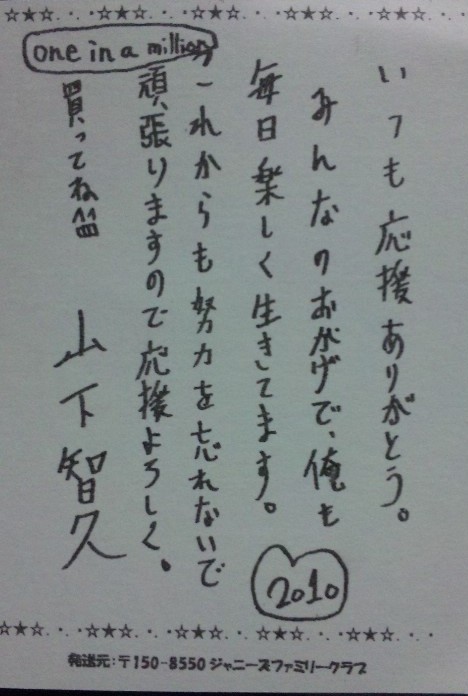 いつも応援ありがとう。
みんなのおかげで、俺も
毎日楽しく生きてます。
これからも努力を忘れないで
頑張りますので応援よろしく。
one in a million
買ってね
山下智久
2010
発送元:〒150-8550 ジャニーズファミリークラブ